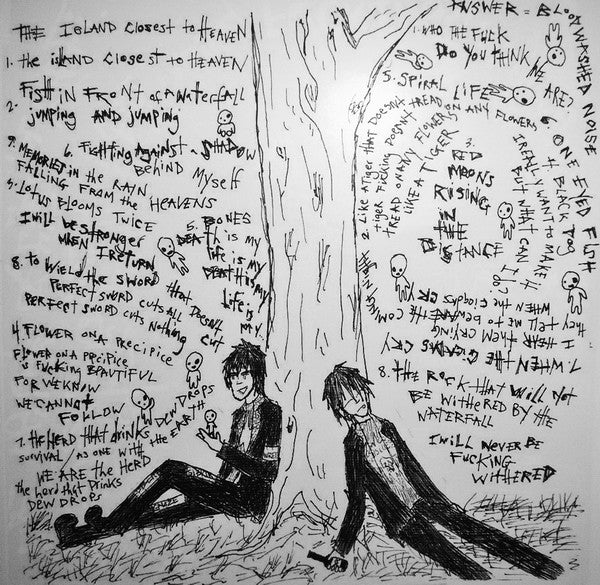 THE ISLAND CLOSEST to HEAVEN
1. the island CLOSEST to HEAVEN
2. FISH IN FRONT of a WATERFALL
JUMPING AND JUMPING
6. FIGHTING AGAINST A SHADOW
BEHIND MYSELF
9. MEMORIES IN the RAIN
FALLING FROM the HEAVENS
3. LOTUS BLOOMS TWICE
I will be stronger
WHEN I RETURN
5. BONES
DEATH is MY
life is MY
DEATH is MY
life is MY
8. to WIELD the SWORD that DOESN'T CUT
PERFECT SWORD CUTS ALL
PERFECT SWORD CUTS NOTHING
4. FLOWER ON A PRECIPICE
FLOWER ON A PRECIPICE
is FUCKING BEAUTIFUL
FOR WE KNOW
WE CANNOT
FOLLOW
7. the HERD THAT DRINKS DEW DROPS
SURVIVAL / AS ONE WITH the EARTH
WE ARE the HERD
the herd that DRINKS
DEW DROPS
ANSWER = BLOOD WASHED NOISE
1. WHO THE FUCK
DO YOU THINK
WE ARE?
5. SPIRAL LIFE
2. Like A TIGER THAT DOESN'T TREAD ON ANY FLOWERS
tiger FUCKING DOESN'T
TREAD ON ANY FLOWERS
LIKE A TIGER
3. RED
MOONS
RISING
IN
THE
DISTANCE
6. ONE EYED FISH
4. BLACK DOG
I REALLY WANT TO MAKE it
BUT WHAT CAN I do?
7. WHEN THE GRAVES CRY
I HEAR them CRYING
they tell me to
WHEN the CRY
8. THE ROCK THAT WILL NOT
BE WITHERED BY THE
WATERFALL
I WILL NEVER BE
FUCKING
WITHERED